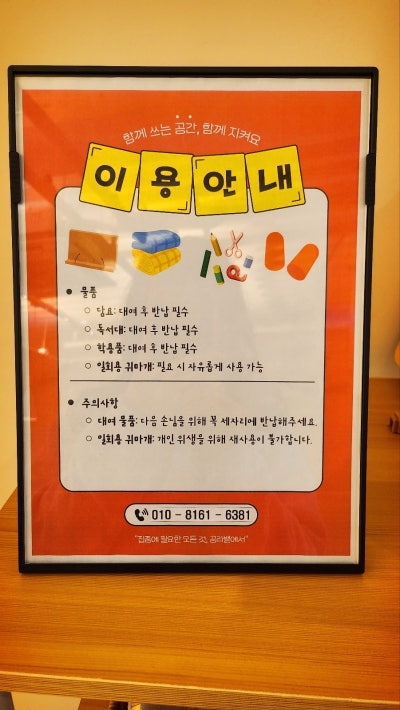 함께 쓰는 공간, 함께 지켜요
이용안내
● 물품
○ 담요: 대여 후 반납 필수
○ 독서대: 대여 후 반납 필수
○ 학용품: 대여 후 반납 필수
○ 일회용 귀마개: 필요 시 자유롭게 사용 가능
● 주의사항
○ 대여 물품: 다음 손님을 위해 꼭 제자리에 반납해주세요.
○ 일회용 귀마개: 개인 위생을 위해 재사용이 불가합니다.
010 - 8161 - 6381
"집중에 필요한 모든 것, 공라밸에서"